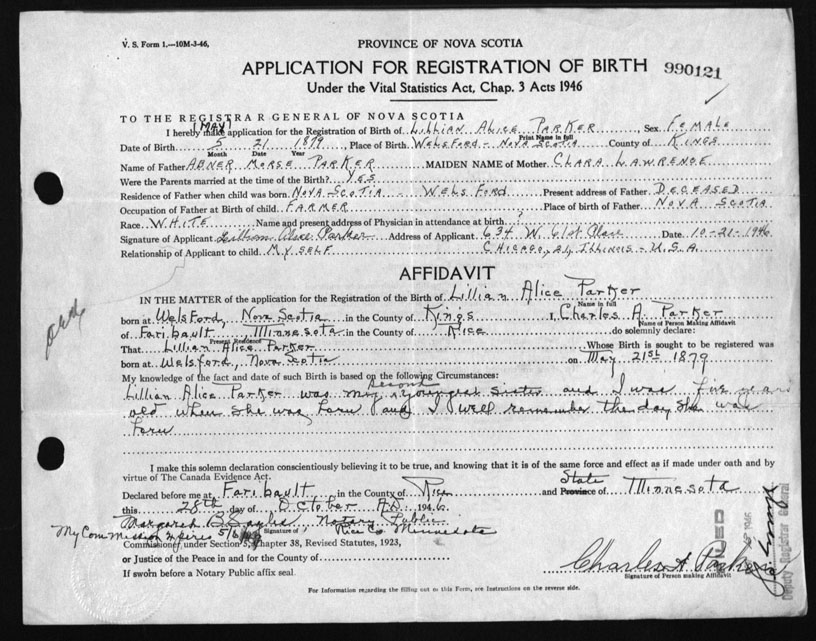 V. S. Form 1.—10M-3-46,
PROVINCE OF NOVA SCOTIA
APPLICATION FOR REGISTRATION OF BIRTH 990121
Under the Vital Statistics Act, Chap. 3 Acts 1946
TO THE REGISTRAR GENERAL OF NOVA SCOTIA
(MAY)
I hereby make application for the Registration of Birth of Lillian Alice Parker, Sex Female
Print Name in full
Date of Birth 5 21 1879, Place of Birth Welsford - Nova Scotia County of Kings
Month Date Year
Name of Father Abner Morse Parker MAIDEN NAME of Mother Clara Lawrence
Were the Parents married at the time of the Birth? Yes
Residence of Father when child was born Nova Scotia - Welsford Present address of Father Deceased
Occupation of Father at Birth of child Farmer Place of birth of Father Nova Scotia
Race White Name and present address of Physician in attendance at birth ?
Signature of Applicant Lillian Alice Parker Address of Applicant 634 W. 61st Place Date 10-21-1946
Relationship of Applicant to child Myself Chicago, 21, Illinois - U.S.A.
AFFIDAVIT
IN THE MATTER of the application for the Registration of Birth of Lillian Alice Parker
Name in full
born at Welsford, Nova Scotia in the County of Kings I, Charles A. Parker
Name of Person Making Affidavit
of Faribault, Minnesota in the County of Rice do solemnly declare:
Present Residence
That Lillian Alice Parker Whose Birth is sought to be registered was
born at Welsford, Nova Scotia on May 21st 1879
My knowledge of the fact and date of such Birth is based on the following Circumstances:
second
Lillian Alice Parker was my youngest sister and I was five years
old when she was born and I well remember the day she was
born
I make this solemn declaration conscientiously believing it to be true, and knowing that it is of the same force and effect as if made under oath and by
virtue of The Canada Evidence Act.
State
Declared before me at Faribault in the County of Rice and Province of Minnesota
this 28th day of October A.D. 1946
Margaret B. Notary Public
My Commission expires Signature of Rice Co. Minnesota
Commissioner under Section 5, Chapter 38, Revised Statutes, 1923,
or Justice of the Peace in and for the County of
Charles A. Parker
Signature of Person making Affidavit
If sworn before a Notary Public affix seal.
For Information regarding the filling out to this Form, see Instructions on the reverse side.
Deputy Registrar General